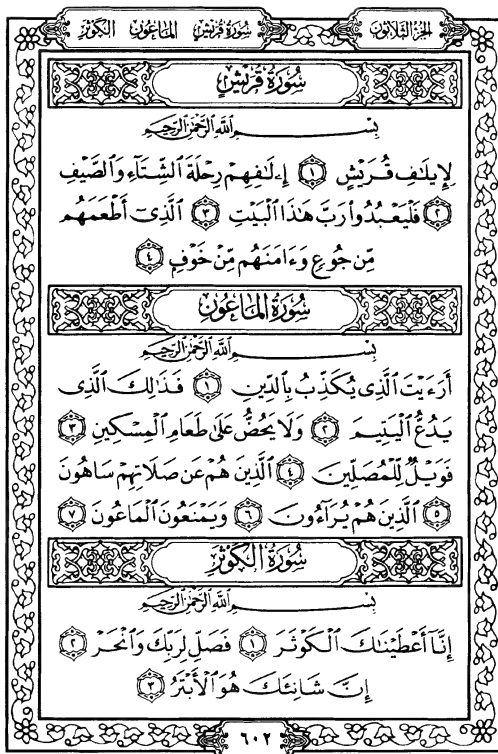 الجزء الثلاثون
سورة قريش الماعون الكوثر
سُورَةُ قُرَيْشٍ
بِسْمِ اللَّهِ الرَّحْمَٰنِ الرَّحِيمِ
لِإِيلَٰفِ قُرَيْشٍ ١ إِۦلَٰفِهِمْ رِحْلَةَ الشِّتَآءِ وَالصَّيْفِ
٢ فَلْيَعْبُدُوا۟ رَبَّ هَٰذَا الْبَيْتِ ٣ الَّذِىٓ أَطْعَمَهُم
مِّن جُوعٍ وَءَامَنَهُم مِّنْ خَوْفٍ ٤
سُورَةُ الْمَاعُونِ
بِسْمِ اللَّهِ الرَّحْمَٰنِ الرَّحِيمِ
أَرَءَيْتَ الَّذِى يُكَذِّبُ بِالدِّينِ ١ فَذَٰلِكَ الَّذِى
يَدُعُّ الْيَتِيمَ ٢ وَلَا يَحُضُّ عَلَىٰ طَعَامِ الْمِسْكِينِ ٣
فَوَيْلٌ لِّلْمُصَلِّينَ ٤ الَّذِينَ هُمْ عَن صَلَاتِهِمْ سَاهُونَ
٥ الَّذِينَ هُمْ يُرَآءُونَ ٦ وَيَمْنَعُونَ الْمَاعُونَ ٧
سُورَةُ الْكَوْثَرِ
بِسْمِ اللَّهِ الرَّحْمَٰنِ الرَّحِيمِ
إِنَّآ أَعْطَيْنَٰكَ الْكَوْثَرَ ١ فَصَلِّ لِرَبِّكَ وَانْحَرْ ٢
إِنَّ شَانِئَكَ هُوَ الْأَبْتَرُ ٣
٦٠٢